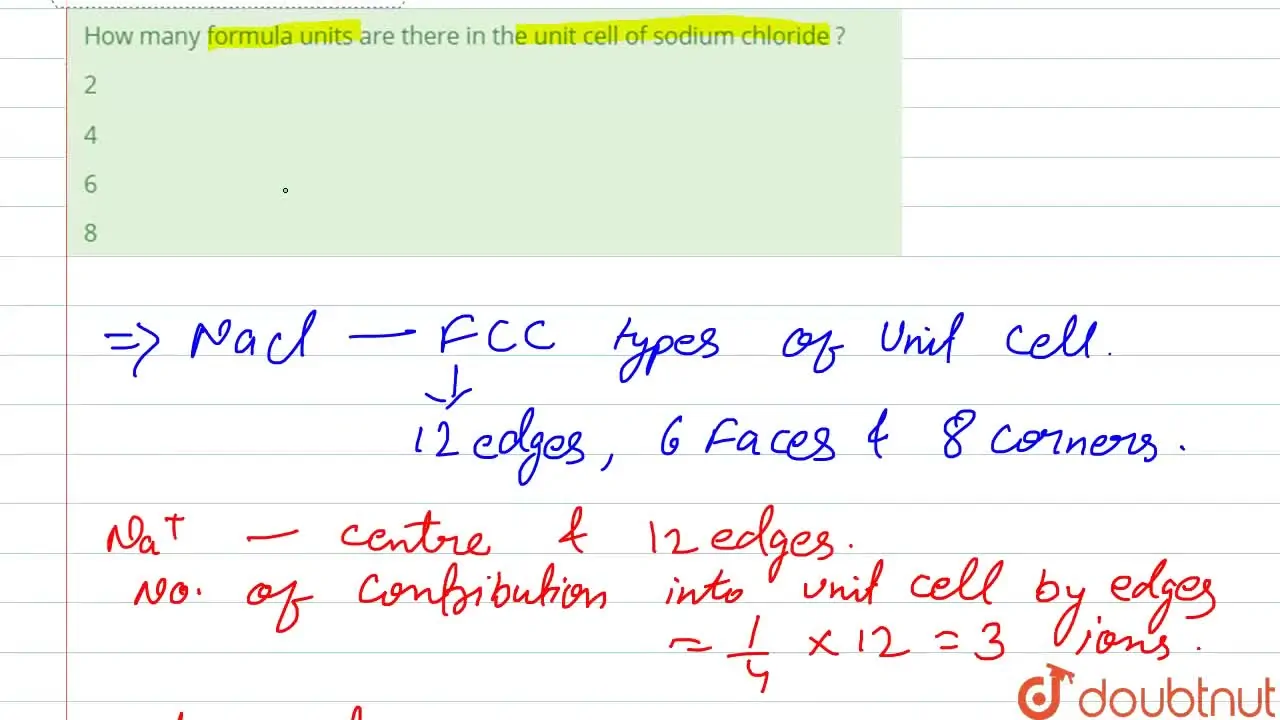 How many formula units are there in the unit cell of sodium chloride ?
2
4
6
8
=> NaCl — FCC types of unit cell.
12 edges, 6 Faces & 8 corners.
Na+ — centre & 12 edges.
No. of contribution into unit cell by edges
= 1/4 × 12 = 3 ions.
doubtnut